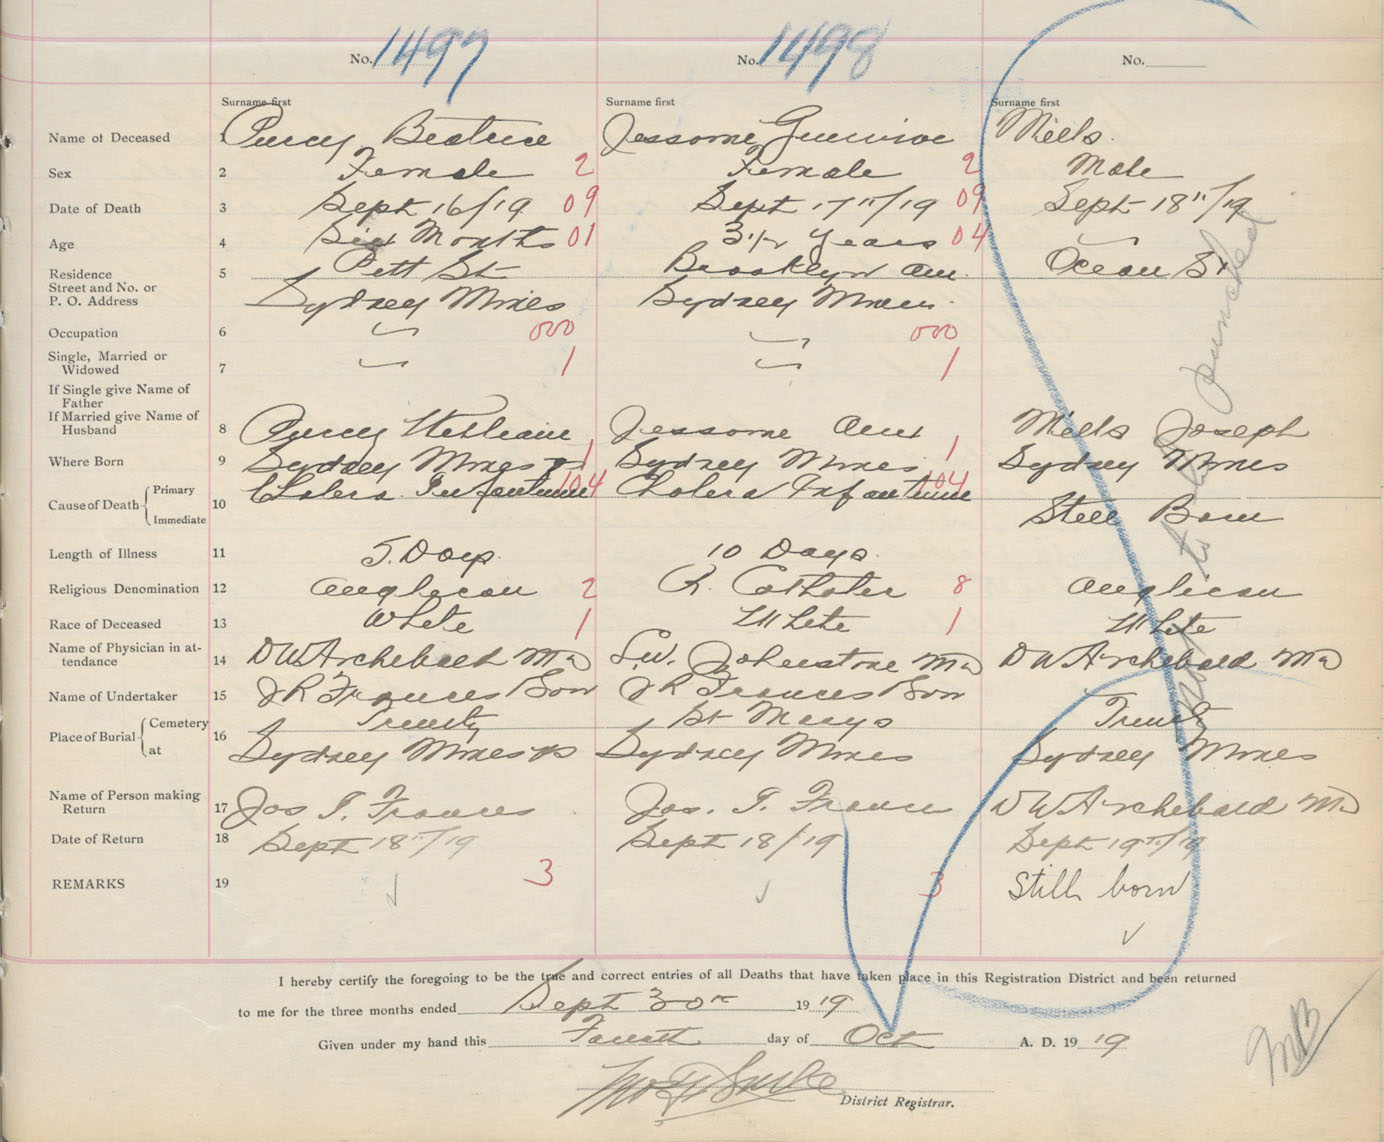 No. 1497 No. 1498 No.
Surname first Surname first Surname first
Name of Deceased 1 Purcy Beatrice Jessome Mills
Sex 2 Female 2 Female 2 Male
Date of Death 3 Sept 16/19 09 Sept 17th/19 09 Sept 18th/19
Age 4 Six Months 01 3 1/2 years 04
Residence 5 Pitt St Brooklyn Ocean St
Street and No. or
P. O. Address Sydney Mines Sydney Mines
Occupation 6 000 000
Single, Married or
Widowed 7 1 1
If Single give Name of
Father
If Married give Name of
Husband 8 Purcy William Jessome Mills Joseph
Where Born 9 Sydney Mines 1 Sydney Mines 1 Sydney Mines
Cause of Death Primary Immediate 10 Cholera Infantum 104 Cholera Infantum 104 Still Born
Length of Illness 11 5 Days 10 Days
Religious Denomination 12 Anglican 2 R. Catholic 8 Anglican
Race of Deceased 13 White 1 White 1 White
Name of Physician in at-
tendance 14 D W Archibald MD Johnstone MD D W Archibald MD
Name of Undertaker 15 J R Frances Son J R Frances Son
Place of Burial Cemetery at 16 Trinity St Marys Trinity
Sydney Mines Sydney Mines Sydney Mines
Name of Person making
Return 17 Jos T. Frances Jos. T. Frances D W Archibald MD
Date of Return 18 Sept 18th/19 Sept 18/19 Sept 19th/19
REMARKS 19 3 3 Still born
Not to be punched
I hereby certify the foregoing to be the true and correct entries of all Deaths that have taken place in this Registration District and been returned
to me for the three months ended Sept 30th 1919
Given under my hand this Fourth day of Oct A. D. 1919
District Registrar.